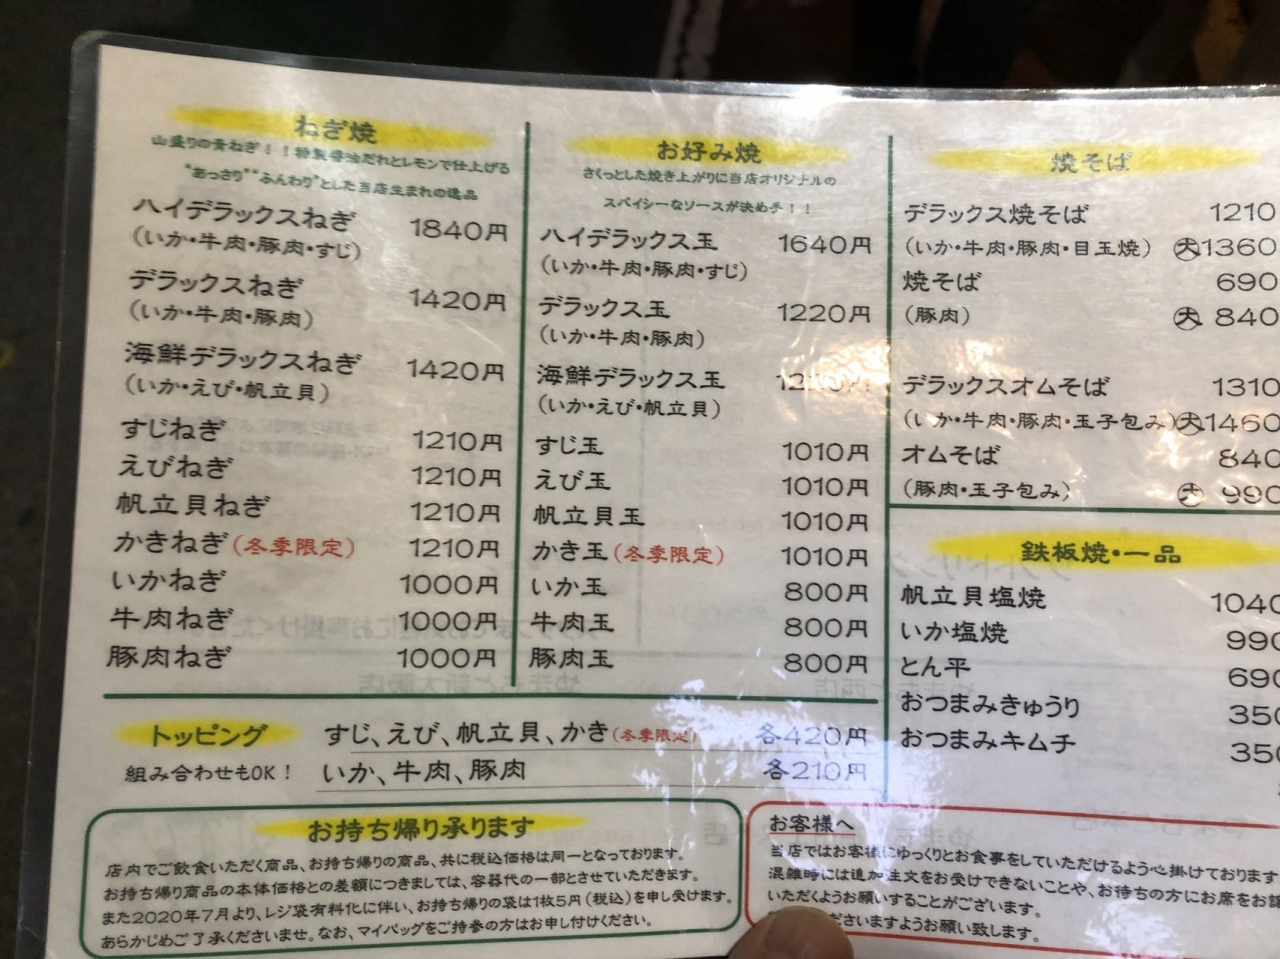 ねぎ焼
山盛りの青ねぎ！！特製醤油だれとレモンで仕上げる
"あっさり""ふんわり"とした当店生まれの逸品
ハイデラックスねぎ 1840円
(いか・牛肉・豚肉・すじ)
デラックスねぎ 1420円
(いか・牛肉・豚肉)
海鮮デラックスねぎ 1420円
(いか・えび・帆立貝)
すじねぎ 1210円
えびねぎ 1210円
帆立貝ねぎ 1210円
かきねぎ(冬季限定) 1210円
いかねぎ 1000円
牛肉ねぎ 1000円
豚肉ねぎ 1000円
お好み焼
さくっとした焼き上がりに当店オリジナルの
スパイシーなソースが決め手！！
ハイデラックス玉 1640円
(いか・牛肉・豚肉・すじ)
デラックス玉 1220円
(いか・牛肉・豚肉)
海鮮デラックス玉
(いか・えび・帆立貝)
すじ玉 1010円
えび玉 1010円
帆立貝玉 1010円
かき玉(冬季限定) 1010円
いか玉 800円
牛肉玉 800円
豚肉玉 800円
焼そば
デラックス焼そば 1210
(いか・牛肉・豚肉・目玉焼) 大1360
焼そば 690
(豚肉) 大 840
デラックスオムそば 1310
(いか・牛肉・豚肉・玉子包み) 大1460
オムそば 840
(豚肉・玉子包み) 大 990
鉄板焼・一品
帆立貝塩焼 1040
いか塩焼 990
とん平 690
おつまみきゅうり 350
おつまみキムチ 350
トッピング すじ、えび、帆立貝、かき(冬季限定) 各420円
組み合わせもOK！ いか、牛肉、豚肉 各210円
お持ち帰り承ります
店内でご飲食いただく商品、お持ち帰りの商品、共に税込価格は同一となっております。
お持ち帰り商品の本体価格との差額につきましては、容器代の一部とさせていただきます。
また2020年7月より、レジ袋有料化に伴い、お持ち帰りの袋は1枚5円(税込)を申し受けます。
あらかじめご了承くださいませ。なお、マイバッグをご持参の方はお申し付けください。
お客様へ
当店ではお客様にゆっくりとお食事をしていただけるよう心掛けております
混雑時には追加注文をお受けできないことや、お待ちの方にお席をお譲
いただくようお願いすることがございます。
ださいますようお願い致します。